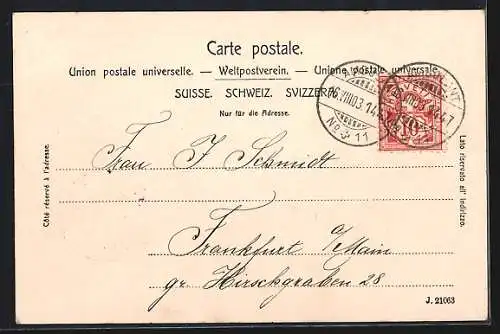 Carte postale.
Union postale universelle. — Weltpostverein. — Unione postale universale.
SUISSE. SCHWEIZ. SVIZZERA.
Nur für die Adresse.
Côté réservé à l'adresse.
Lato riservato all' indirizzo.
10
VIII 03
No 11
Frau J Schmidt
Frankfurt a/Main
gr Hirschgraben 28
J. 21063